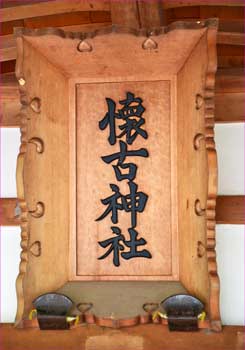 懐古神社